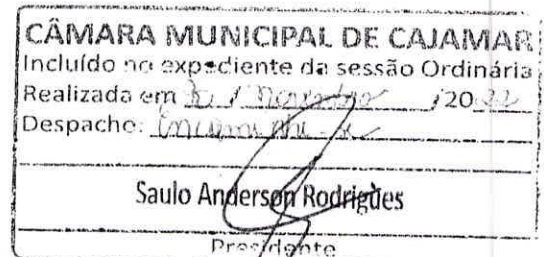 CÂMARA MUNICIPAL DE CAJAMAR
Incluído no expediente da sessão Ordinária
Realizada em / novembro /2022
Despacho: Encaminhe-se
Saulo Anderson Rodrigues
Presidente